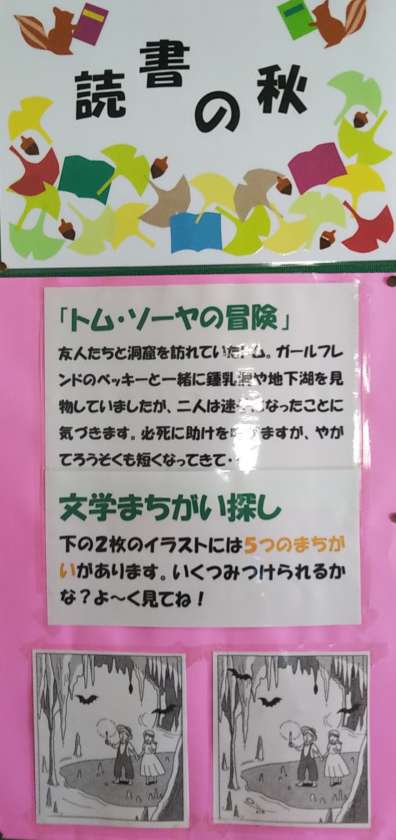 読書の秋
「トム・ソーヤの冒険」
友人たちと洞窟を訪れていたトム。ガールフレ
ンドのベッキーと一緒に鍾乳洞や地下湖を見
物していましたが、二人は迷 なったことに
気づきます。必死に助けを びますが、やが
てろうそくも短くなってきて・
文学まちがい探し
下の2枚のイラストには5つのまちが
いがあります。いくつみつけられるか
な？よ〜く見てね！